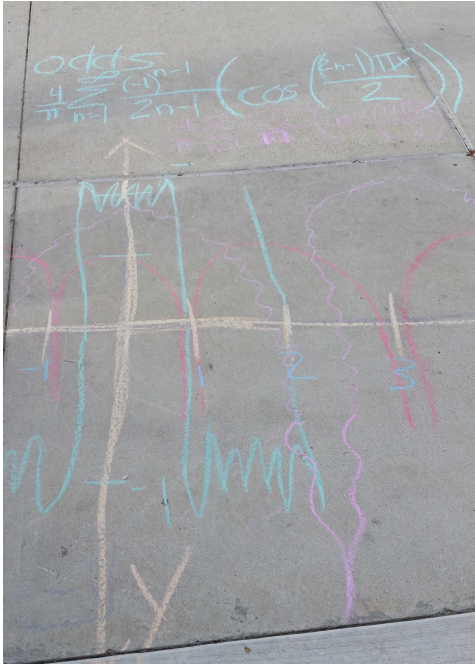 odds
4/π ∞ Σ n=1 (-1)^n-1 / 2n-1 (cos((2n-1)πx / 2))
-1 1 2 3
-1
Y